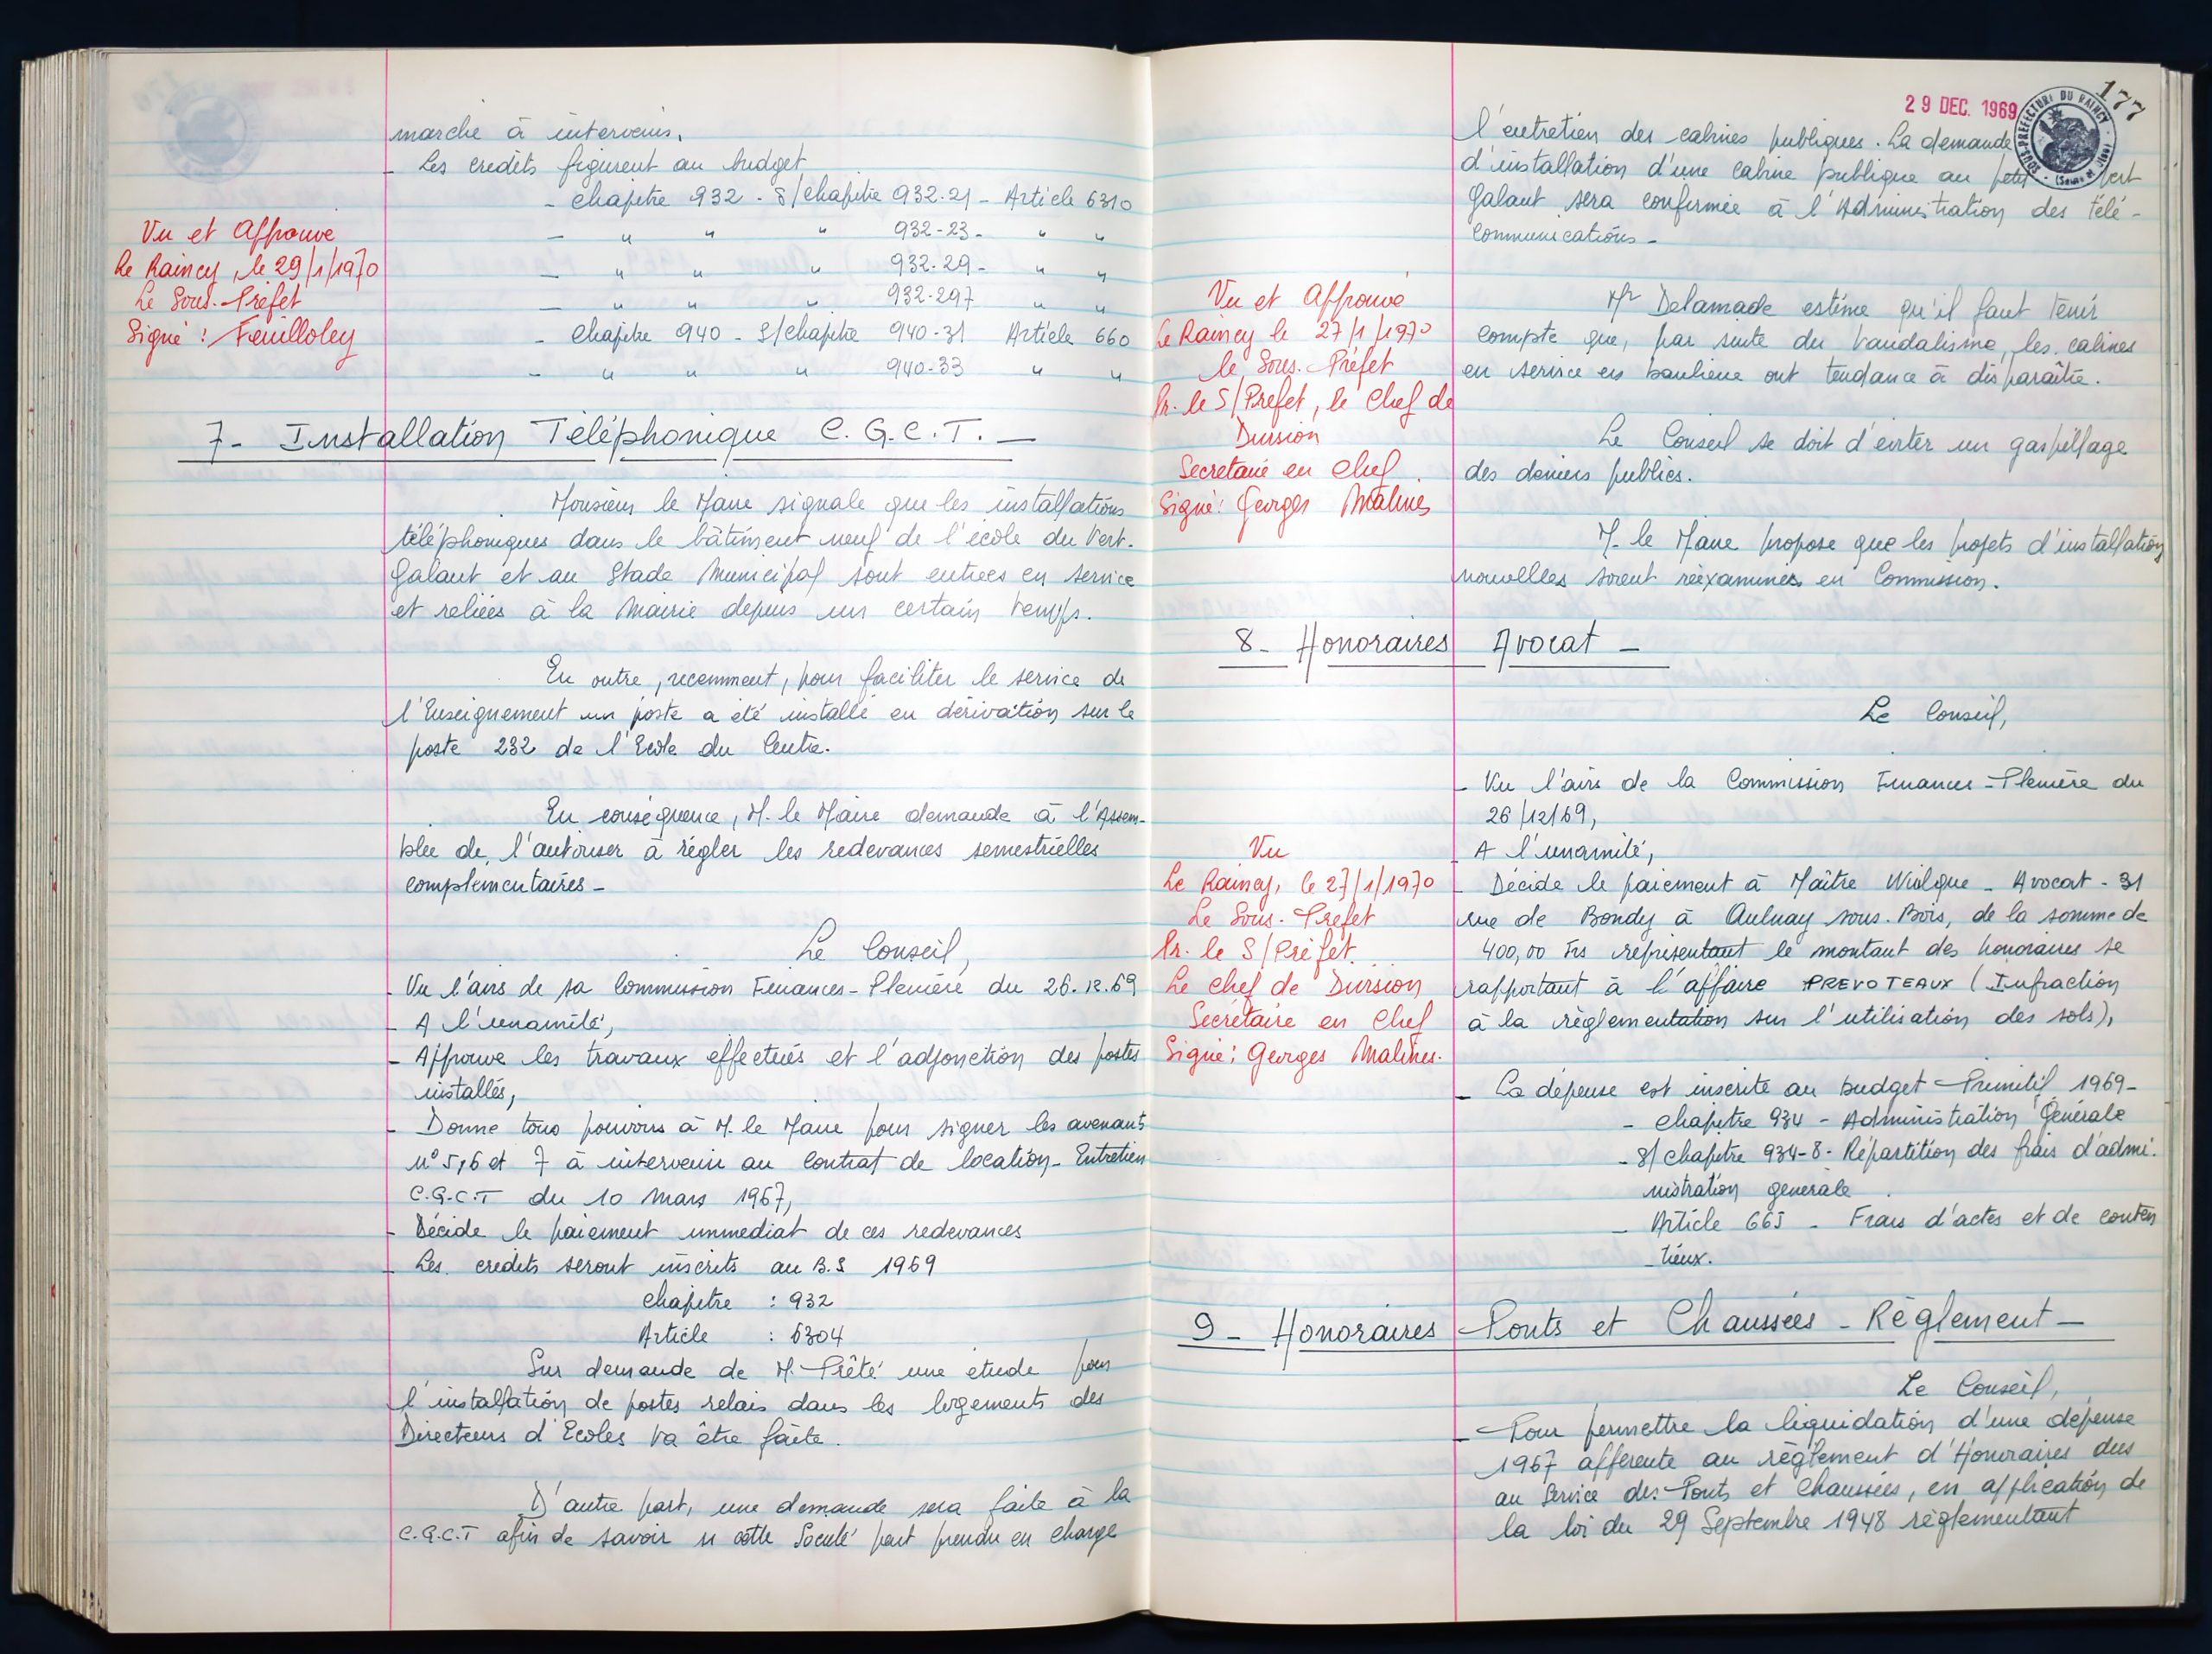 marché à intervenir.
- Les crédits figurent au budget
- chapitre 932 - S/chapitre 932-21 - Article 6310
- " " " 932-23 - " "
- " " " 932-29 - " "
- " " " 932-297 " "
- chapitre 940 - S/chapitre 940-31 Article 660
- " " " 940-33 " "
Vu et Approuvé
Le Raincy, le 29/1/1970
Le Sous-Préfet
Signé : Feuilloley
7- Installation Téléphonique C.G.C.T. -
Monsieur le Maire signale que les installations
téléphoniques dans le bâtiment neuf de l'école du Vert-
Galant et au Stade Municipal sont entrées en service
et reliées à la Mairie depuis un certain temps.
En outre, récemment, pour faciliter le service de
l'Enseignement un poste a été installé en dérivation sur le
poste 232 de l'Ecole du Centre.
En conséquence, M. le Maire demande à l'Assem-
blée de l'autoriser à régler les redevances semestrielles
complémentaires -
Le Conseil,
- Vu l'avis de sa Commission Finances-Plénière du 26.12.69
- A l'unamité,
- Approuve les travaux effectués et l'adjonction des postes
installés,
- Donne tous pouvoirs à M. le Maire pour signer les avenants
n° 5, 6 et 7 à intervenir au Contrat de location-Entretien
C.G.C.T du 10 Mars 1967,
- Décide le paiement immédiat de ces redevances
- Les crédits seront inscrits au B.S 1969
chapitre : 932
Article : 6304
Sur demande de M. Prêté une étude pour
l'installation de postes relais dans les logements des
Directeurs d'Ecoles va être faite.
D'autre part, une demande sera faite à la
C.G.C.T afin de savoir si cette Société peut prendre en charge
29 DEC. 1969
177
SOUS-PREFECTURE DU RAINCY
l'entretien des cabines publiques. La demande
d'installation d'une cabine publique au petit Vert
Galant sera confirmée à l'Administration des Télé-
communications -
Vu et Approuvé
Le Raincy le 27/1/1970
le Sous-Préfet
Pr. le S/Préfet, le Chef de
Division
Secrétaire en Chef
Signé : Georges Malines
Mr Delamade estime qu'il faut tenir
compte que, par suite du vandalisme, les cabines
en service en banlieue ont tendance à disparaître.
Le Conseil se doit d'éviter un gaspillage
des deniers publics.
M. le Maire propose que les projets d'installation
nouvelles soient réexaminés en Commission.
8- Honoraires Avocat -
Le Conseil,
- Vu l'avis de la Commission Finances-Plénière du
26/12/69,
- A l'unamité,
- Décide le paiement à Maître Wiolque - Avocat - 31
rue de Bondy à Aulnay sous-Bois, de la somme de
400,00 Frs représentant le montant des honoraires se
rapportant à l'affaire PREVOTEAUX (Infraction
à la règlementation sur l'utilisation des sols),
Vu
Le Raincy, le 27/1/1970
Le Sous-Préfet
Pr. le S/Préfet
Le Chef de Division
Secrétaire en Chef
Signé : Georges Malines.
- La dépense est inscrite au budget Primitif 1969-
- chapitre 934 - Administration Générale
- S/chapitre 934-8 - Répartition des frais d'admi-
nistration générale
- Article 665 - Frais d'actes et de conten
tieux.
9- Honoraires Ponts et Chaussées - Règlement -
Le Conseil,
- Pour permettre la liquidation d'une dépense
1967 afférente au règlement d'Honoraires dus
au Service des Ponts et Chaussées, en application de
la loi du 29 Septembre 1948 règlementant